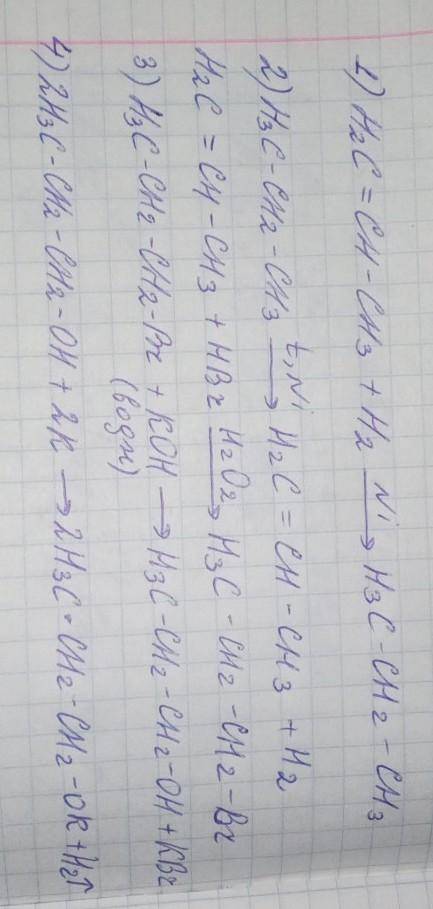 1) H2C = CH - CH3 + H2 Ni → H3C - CH2 - CH3
2) H3C - CH2 - CH3 t, Ni → H2C = CH - CH3 + H2
H2C = CH - CH3 + HBr H2O2 → H3C - CH2 - CH2 - Br
3) H3C - CH2 - CH2 - Br + KOH → H3C - CH2 - CH2 - OH + KBr
(водн)
4) 2H3C - CH2 - CH2 - OH + 2K → 2H3C - CH2 - CH2 - OK + H2↑